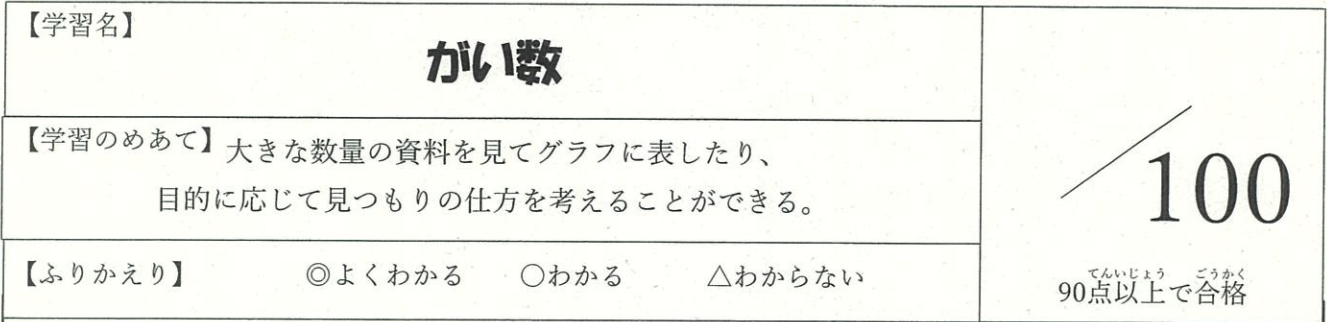 【学習名】
がい数
【学習のめあて】大きな数量の資料を見てグラフに表したり、
目的に応じて見つもりの仕方を考えることができる。
【ふりかえり】 ◎よくわかる ○わかる △わからない
/100
てんいじょう ごうかく
90点以上で合格